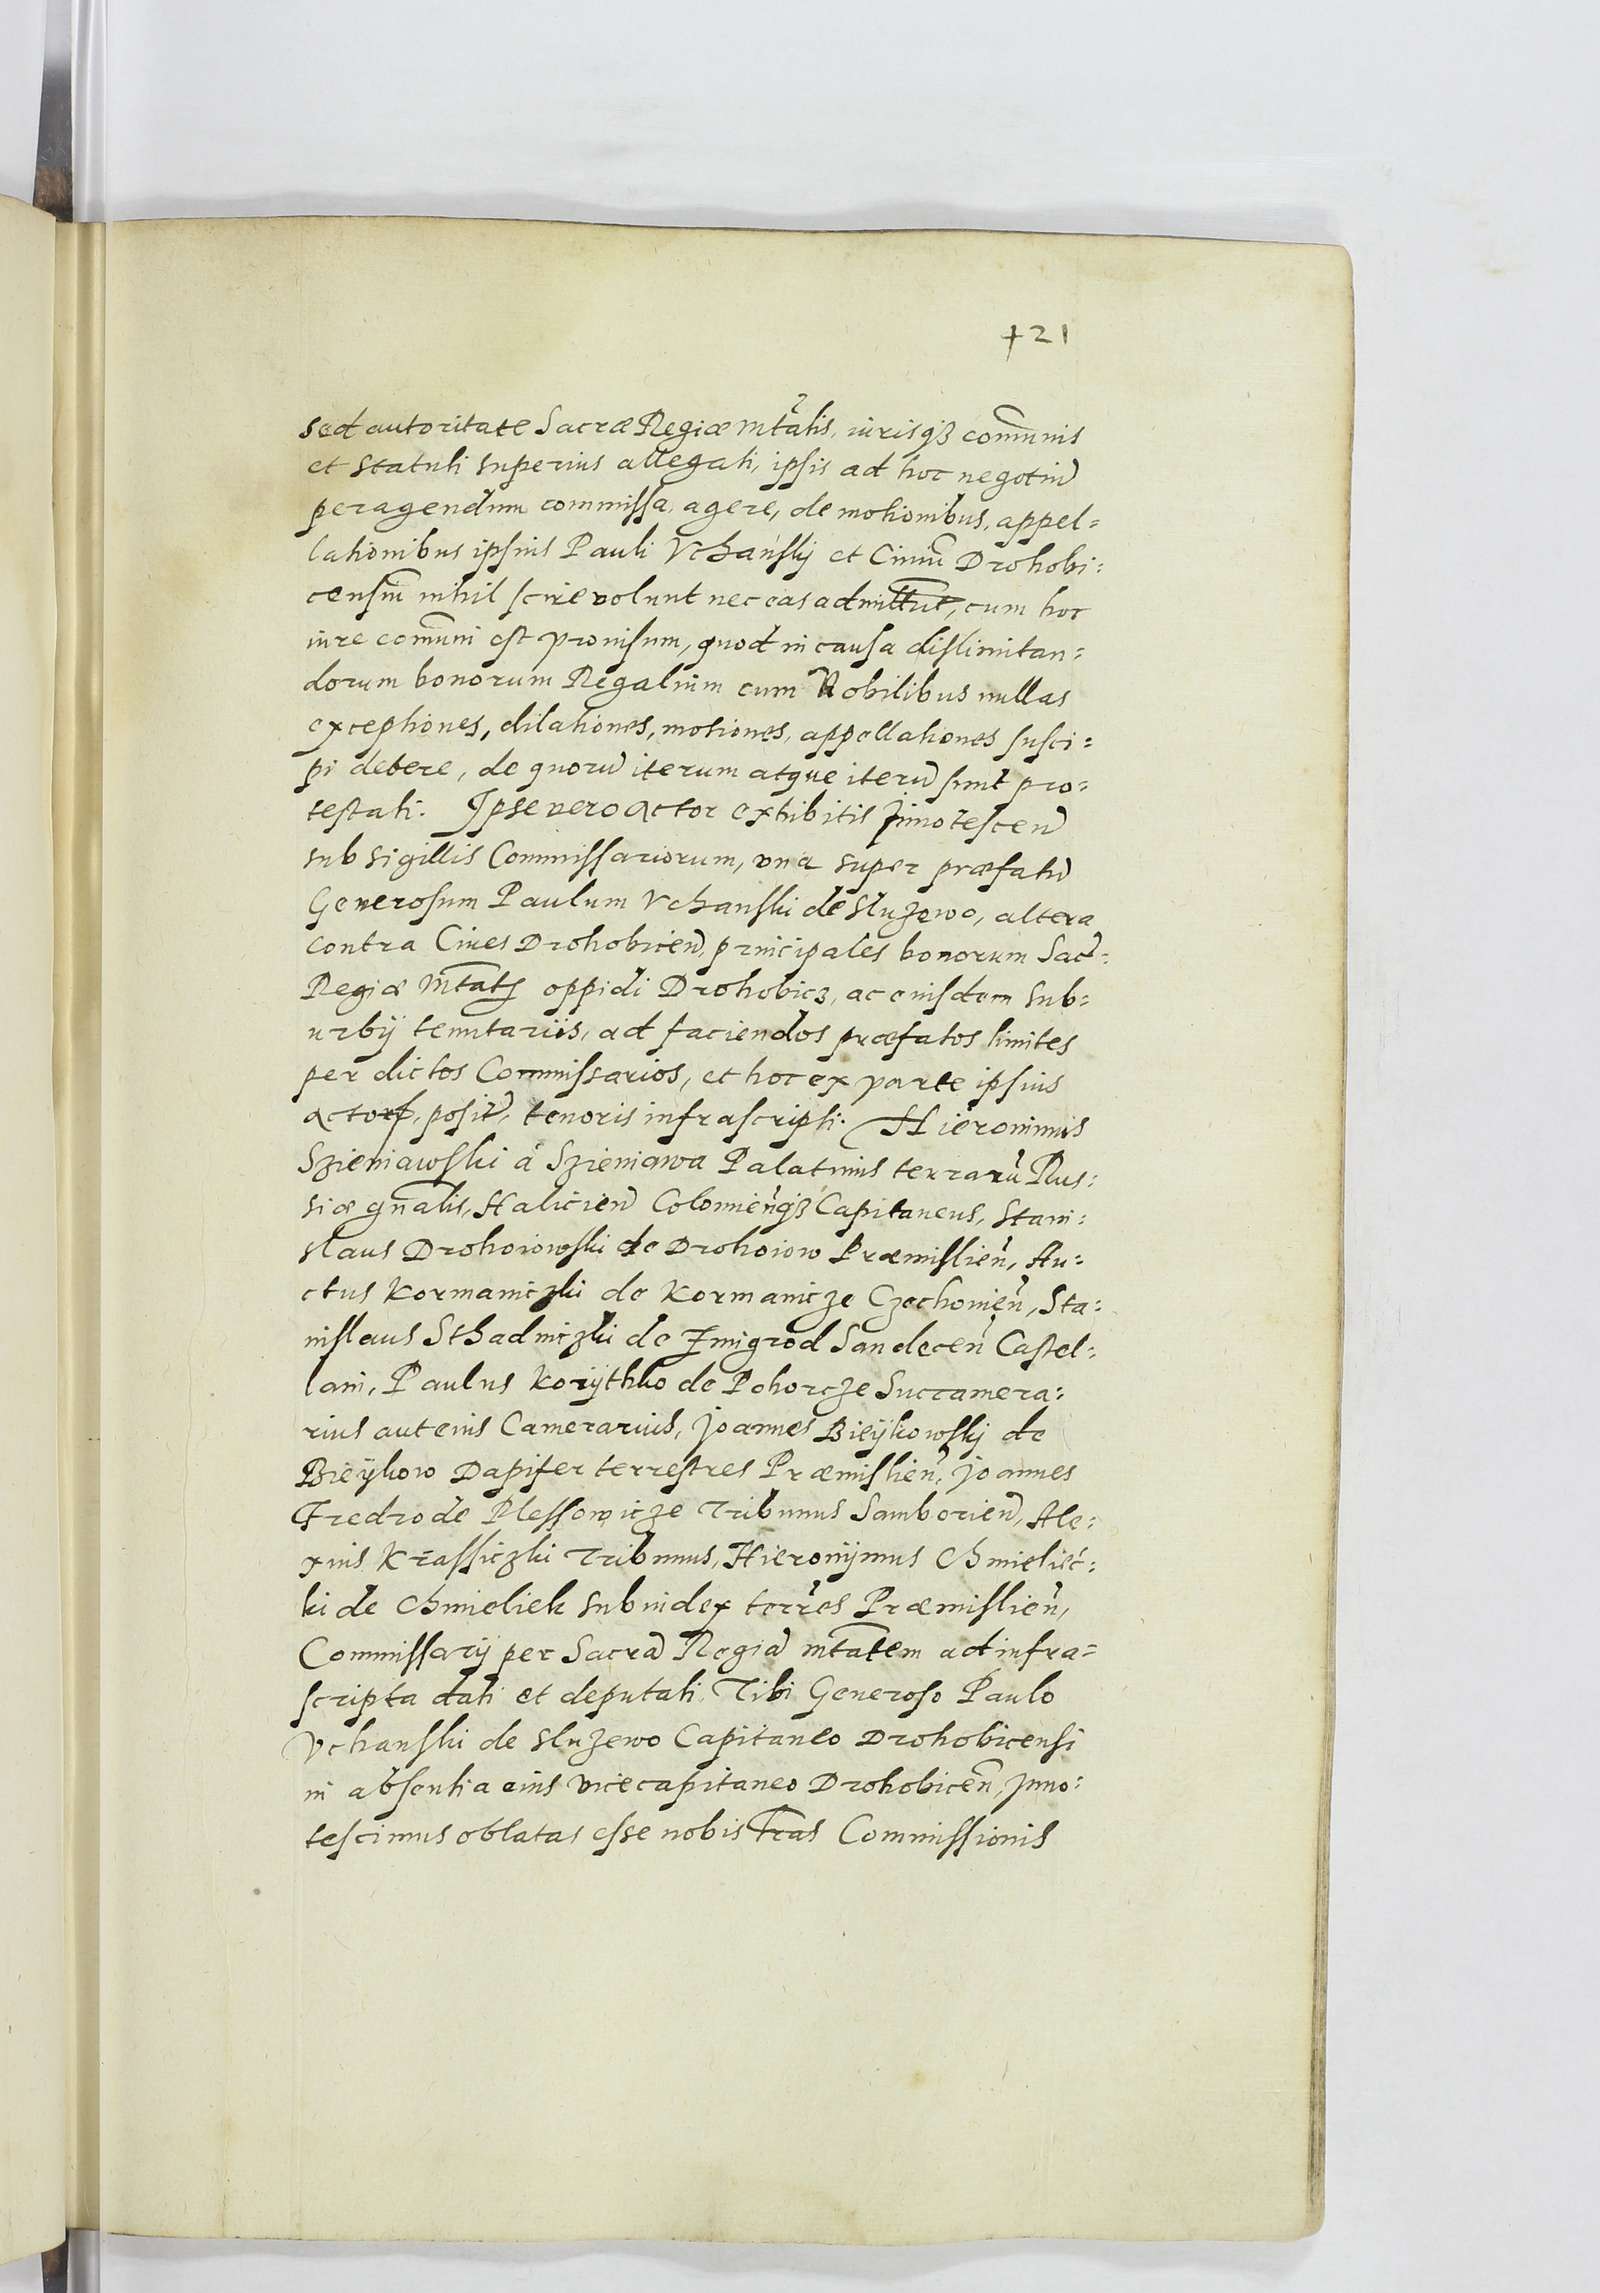 421
sed autoritate Sacræ Regiæ Mtatis, iurisqȝ com̄unis
et statuti superius allegati, ipsis ad hoc negotiu̅
peragendum commissa agere, de motionibus, appel=
lationibus ipsius Pauli Vchański et Ciuiu̅ Drohobi=
censiu̅ nihil scire volunt nec eas admittu̅t, cum hoc
iure com̄uni est prouisum, quod in causa dislimitan=
dorum bonorum Regalium cum Nobilibus nullas
exceptiones, dilationes, motiones, appellationes susci=
pi debere, de quoru̅ iterum atque iteru̅ sunt pro=
testati. Ipse vero Actor exhibitis Innotescen̅
sub sigillis Commissariorum, vna super præfatu̅
Generosum Paulum Vchanski de Sluzewo, altera
contra Ciues Drohobicen̅, principales bonorum Sac̅=
Regiæ Mtatis oppidi Drohobicz, ac eiusdem sub=
urbÿ tenutarijs, ad faciendos præfatos limites
per dictos Commissarios, et hoc ex parte ipsius
Actoris, positu̅, tenoris infrascripti. Hieronimus
Szieniawski à Szieniawa Palatinus terraru̅ Rus=
siæ gn̄alis, Halicien̅ Colomien̅qȝ Capitaneus, Stani=
slaus Drohoiowski de Drohoiow Præmislien̅, Au=
ctus Kormaniczki de Kormanicze Czechonien̅, Sta=
nislaus Sthadniczki de Zmigrod Sandecen̅ Castel=
lani, Paulus Korÿthko de Pohorcze Succamera=
rius aut eius Camerarius, Joannes Bieÿkowskÿ de
Bieÿkow Dapifer terrestres Præmislien̅, Joannes
Fredro de Plessowicze Tribunus Samborien̅, Ale=
xius Krassiczki Tribunus, Hieronÿmus Chmieliec=
ki de Chmieliek subiudex terr̅es Præmislien̅,
Commissarÿ per Sacra̅ Regia̅ Mtatem ad infra=
scripta dati et deputati. Tibi Generoso Paulo
Vchanski de Sluzewo Capitaneo Drohobicensi
in absentia eius vicecapitaneo Drohobicen̅, Inno=
tescimus oblatas esse nobis l̅ras Commissionis